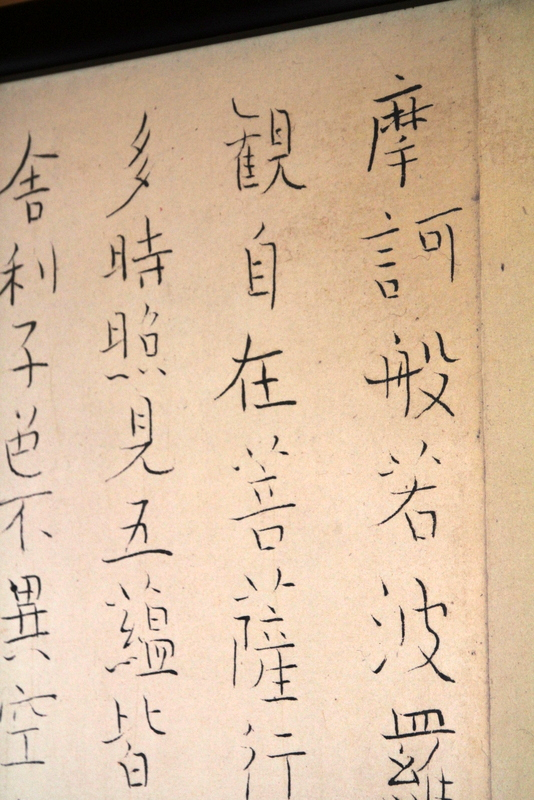 摩訶般若波羅
観自在菩薩行
多時照見五蘊皆
舎利子色不異空